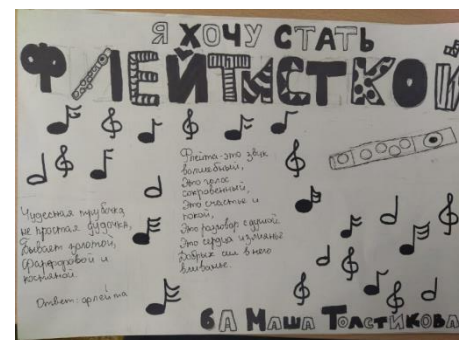 Я ХОЧУ СТАТЬ
ФЛЕЙТИСТКОЙ
Чудесная трубочка,
не простая дудочка,
Бывает золотой,
Фарфоровой и
костяной.
Ответ: флейта
Флейта-это звук
волшебный,
Это голос
сокровенный,
Это счастье и
покой,
Это разговор с душой.
Это сердца излиянье
Добрых сил в него
вливанье.
6А Маша Толстикова